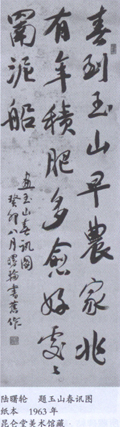 春到玉山早農家兆
有年積肥多愈好處〻
罱泥船
題玉山春訊圖
癸卯八月曙輪書舊作
陆曙轮 题玉山春讯图
纸本 1963年
昆仑堂美术馆藏